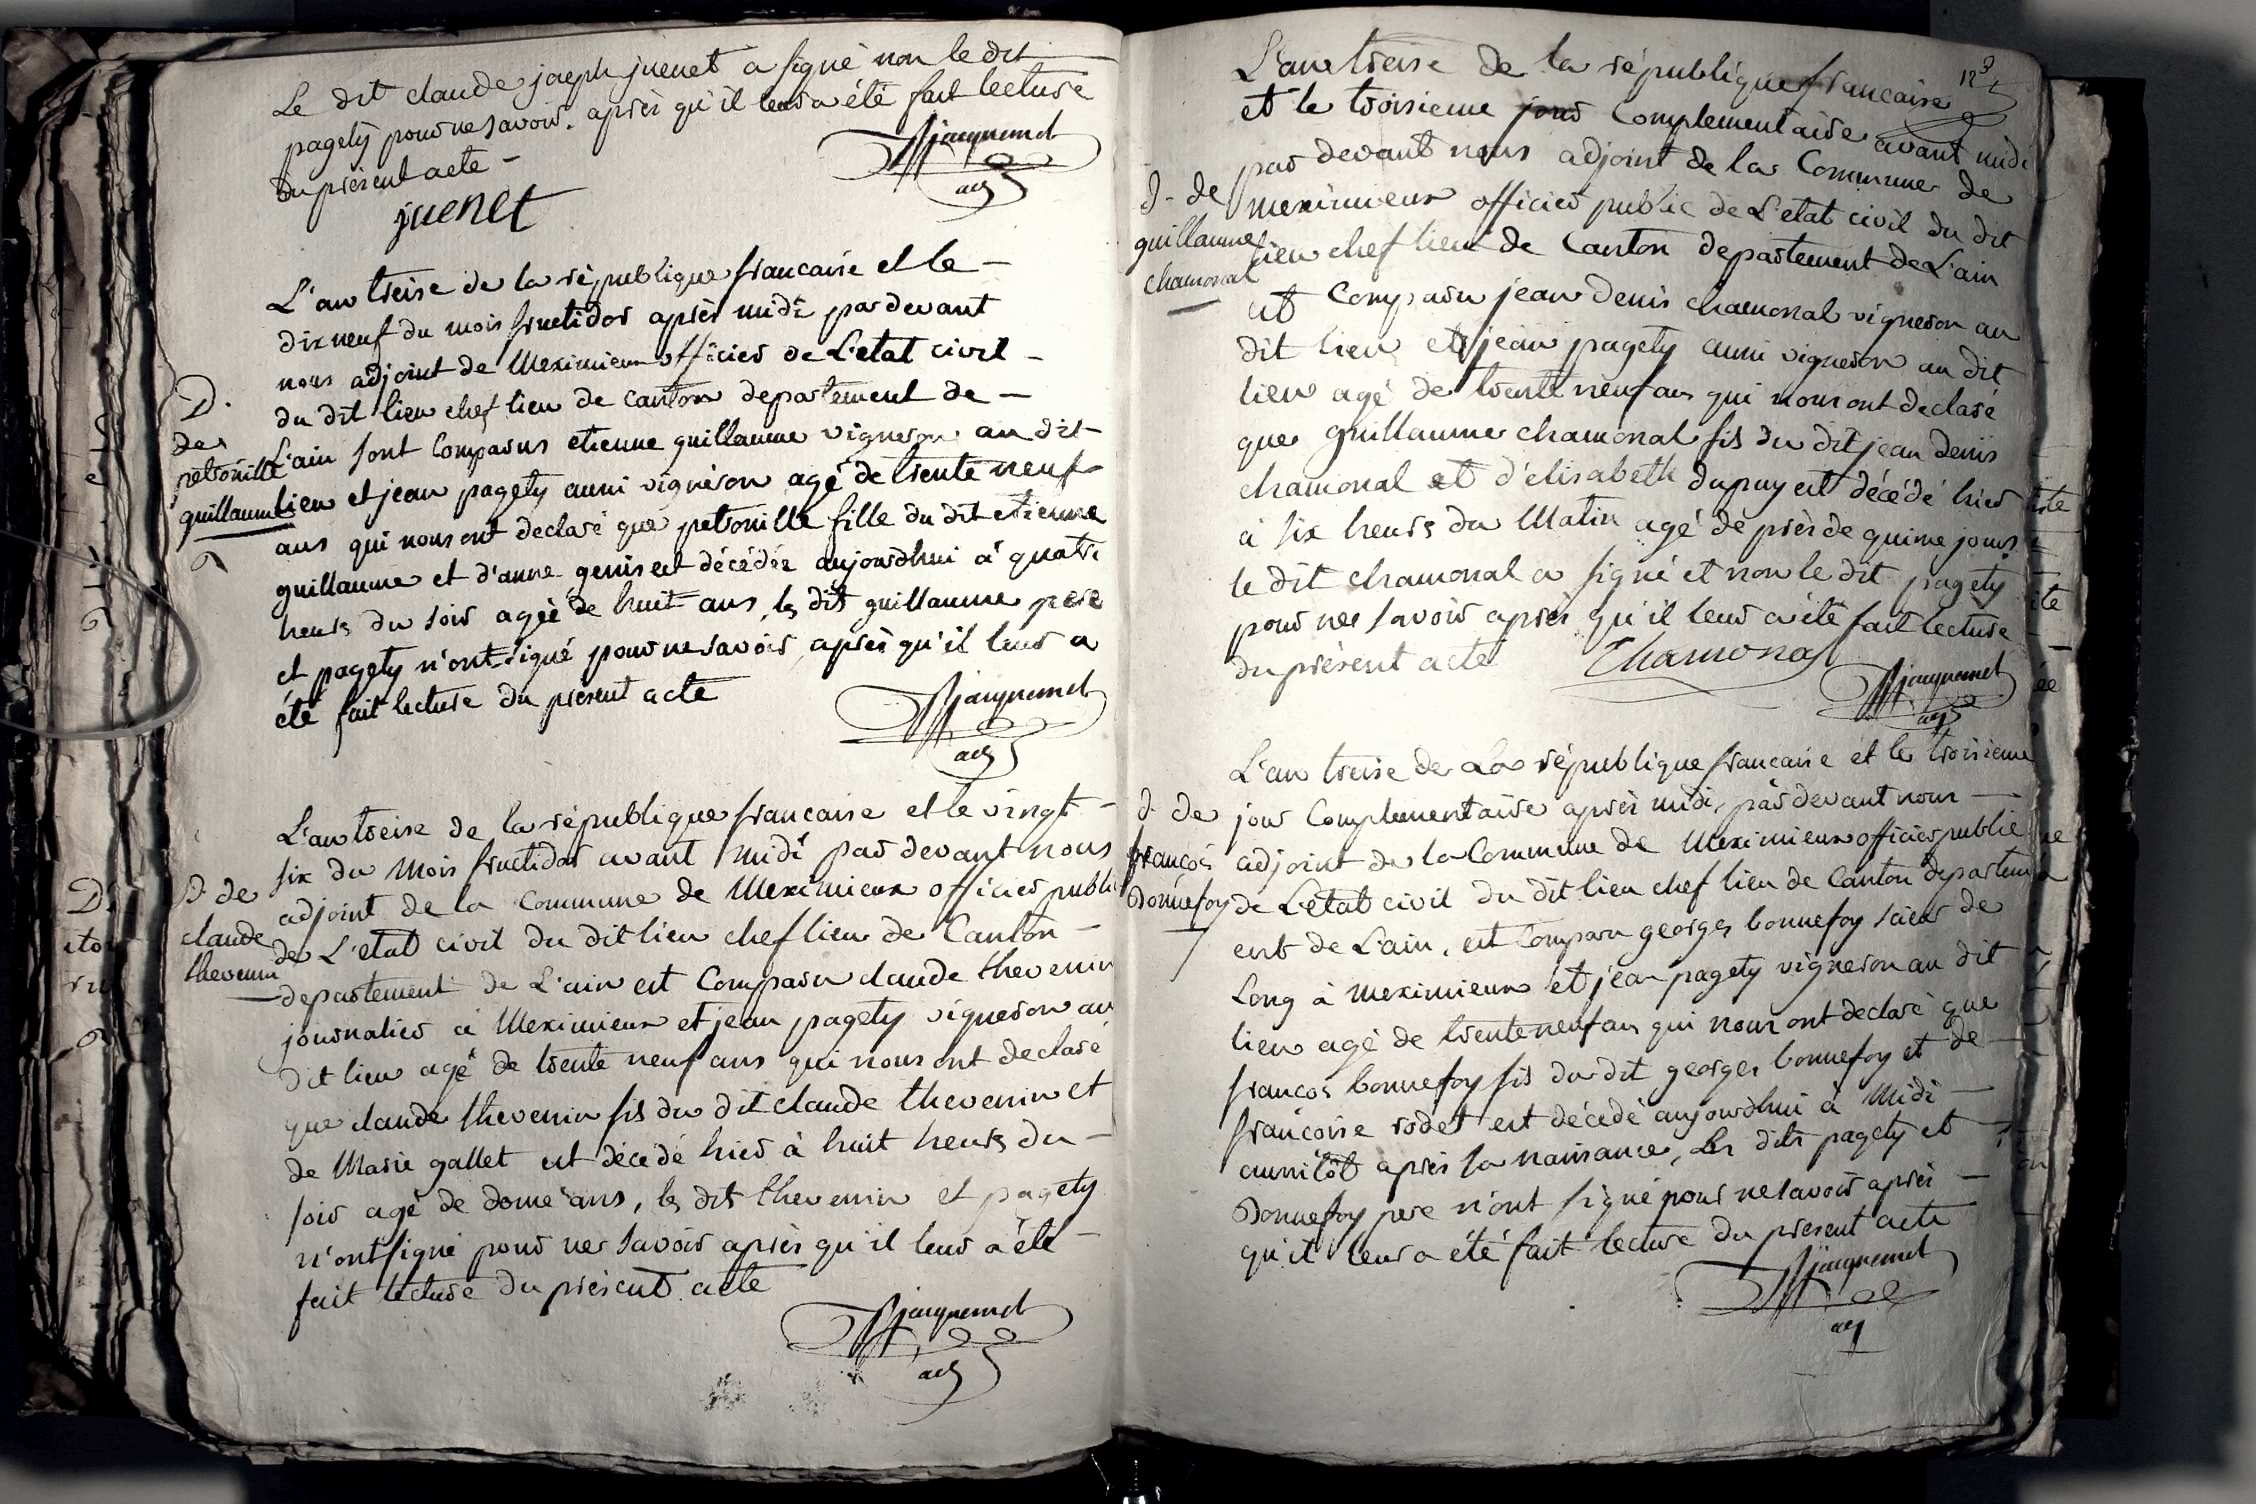 Le dit claude joseph juenet a signé non le dit
pagety pour ne savoir. après qu'il leur a été fait lecture
du présent acte
Jjacquemet
adj
juenet
L'an treise de la république francaise et le
dix neuf du mois fructidor après midi par devant
nous adjoint de Meximieux officier de L'etat civil
du dit lieu chef lieu de canton departement de
L'ain sont Comparus etienne guillaume vigneron au dit
lieu et jean pagety aussi vignéron agé de trente neuf
ans qui nous ont declaré que petronille fille du dit etienne
guillaume et d'anne genis est décédée aujourdhui à quatre
heurs du soir agée de huit ans, les dits guillaume pere
et pagety n'ont signé pour ne savoir, après qu'il leur a
été fait lecture du present acte
Jjacquemet
adj
D.
de
petronille
guillaume
L'an treise de la république francaise et le vingt
six du Mois fructidor avant midi par devant nous
adjoint de la commune de Meximieux officier public
de L'etat civil du dit lieu chef lieu de Canton
departement de L'ain est Comparu claude thevenin
journalier à Meximieux et jean pagety vigneron au
dit lieu agé de trente neuf ans qui nous ont declaré
que claude thevenin fils du dit claude thevenin et
de Marie gallet est décédé hier à huit heurs du
soir agé de douse ans, les dits thevenin et pagety
n'ont signé pour ne savoir après qu'il leur a été
fait lecture du présent acte
Jjacquemet
adj
d. de
claude
thevenin
L'an treise de la république francaise
et le troisieme jour Complementaire avant midi
par devant nous adjoint de la Commune de
meximieux officier public de L'etat civil du dit
lieu chef lieu de Canton departement de L'ain
est Comparu jean denis chamonal vigneron au
dit lieu et jean pagety aussi vigneron au dit
lieu agé de trente neuf ans qui nous ont declaré
que guillaume chamonal fils du dit jean denis
chamonal et d'élisabeth dupuy est décédé hier
à six heurs du Matin agé de près de quinse jours
le dit chamonal a signé et non le dit pagety
pour ne savoir après qu'il leur a été fait lecture
du présent acte
Chamonal
Jjacquemet
adj
d. de
guillaume
chamonal
L'an treise de La république francaise et le troisieme
jour Complementaire après midi, par devant nous
adjoint de la Commune de Meximieux officier public
de L'etat civil du dit lieu chef lieu de Canton departem
ent de L'ain, est Comparu georges bonnefoy scieur de
Long à meximieux et jean pagety vigneron au dit
lieu agé de trente neuf ans qui nous ont declaré que
francos bonnefoy fils du dit georges bonnefoy et de
francoise rodet est décédé aujourdhui à Midi
aussitôt après sa naissance, Les dits pagety et
Bonnefoy pere n'ont signé pour ne savoir après
qu'il leur a été fait lecture du present acte
Jjacquemet
adj
d. de
francos
Bonnefoy